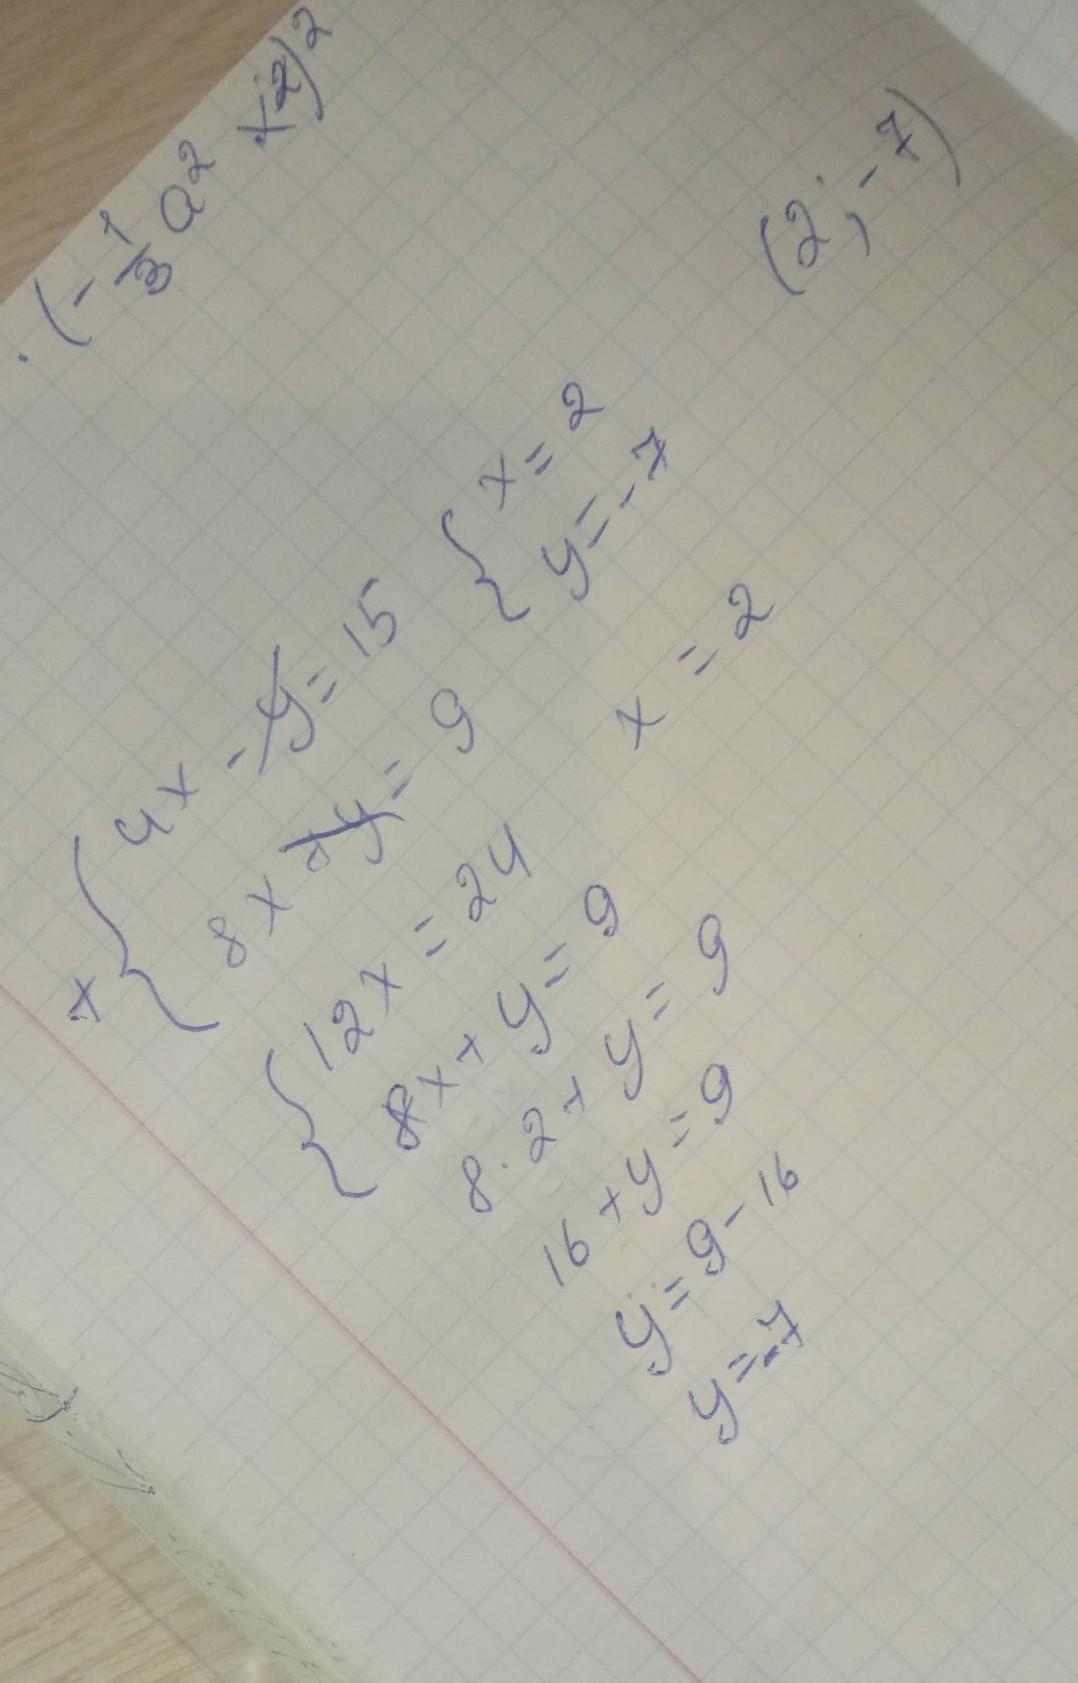 · (-1/3 a² x²)²
+ { 4x - y = 15
8x + y = 9
{ x = 2
y = -7
(2; -7)
{ 12x = 24
8x + y = 9
x = 2
8 · 2 + y = 9
16 + y = 9
y = 9 - 16
y = -7